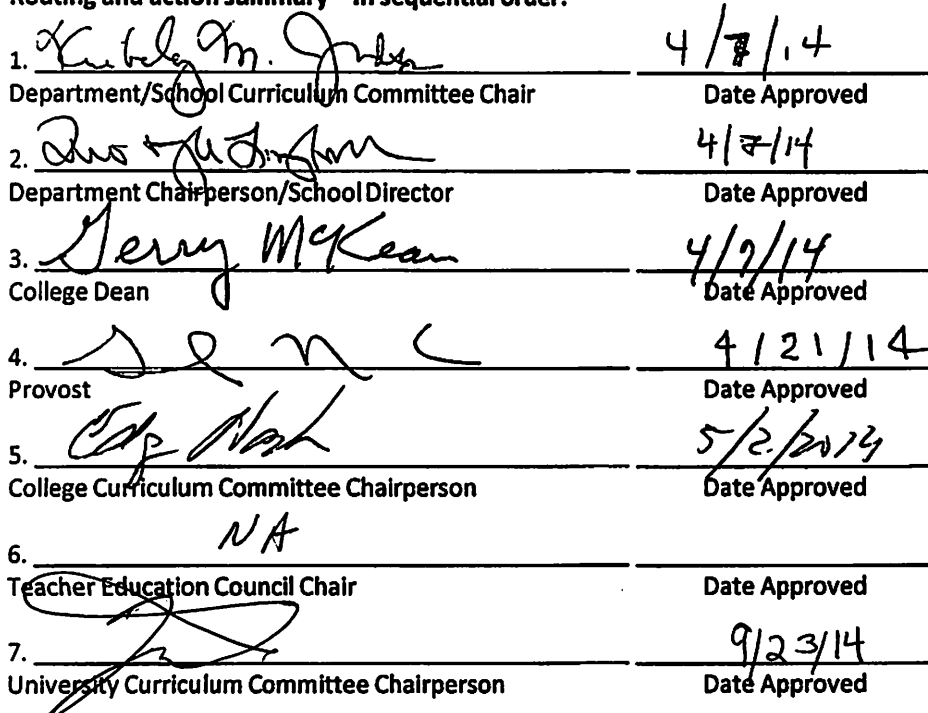 Routing and action summary – in sequential order:
1. M. 4/7/14
Department/School Curriculum Committee Chair Date Approved
2. 4/7/14
Department Chairperson/School Director Date Approved
3. Gerry McKean 4/7/14
College Dean Date Approved
4. 4/21/14
Provost Date Approved
5. 5/2/2014
College Curriculum Committee Chairperson Date Approved
6. NA
Teacher Education Council Chair Date Approved
7. 9/23/14
University Curriculum Committee Chairperson Date Approved